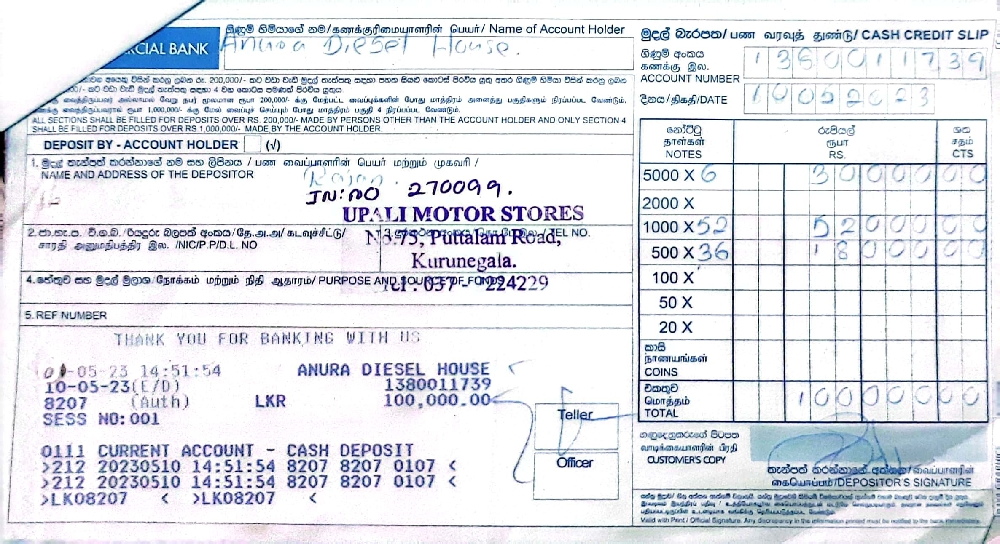 ගිණුම් හිමියාගේ නම/கணக்குரிமையாளரின் பெயர்/ Name of Account Holder
CIAL BANK
Anura Diesel House.
මුදල් බැරපත/பண வரவுத் துண்டு/CASH CREDIT SLIP
ගිණුම් අංකය
கணக்கு இல.
ACCOUNT NUMBER
දිනය/திகதி/DATE 10052023
ALL SECTIONS SHALL BE FILLED FOR DEPOSITS OVER RS. 200,000/- MADE BY PERSONS OTHER THAN THE ACCOUNT HOLDER AND ONLY SECTION 4
SHALL BE FILLED FOR DEPOSITS OVER RS 1,000,000/- MADE BY THE ACCOUNT HOLDER
DEPOSIT BY - ACCOUNT HOLDER (√)
1. මුදල් තැන්පත් කරන්නාගේ නම සහ ලිපිනය / பண வைப்பாளரின் பெயர் மற்றும் முகவரி /
NAME AND ADDRESS OF THE DEPOSITOR
IN: NO 270099.
UPALI MOTOR STORES
No.75, Puttalam Road,
Kurunegala.
Tel : 037 - 224229
சாரதி அனுமதிபத்திர இல. /NIC/P.P/D.L. NO
TEL NO.
4. හේතුව සහ මුදල් මූලාශ්‍ර/நோக்கம் மற்றும் நிதி ஆதாரம்/ PURPOSE AND SOURCE OF FUNDS
5. REF NUMBER
THANK YOU FOR BANKING WITH US
-05-23 14:51:54 ANURA DIESEL HOUSE
10-05-23(E/D) 1380011739
8207 (Auth) LKR 100,000.00
SESS NO:001
0111 CURRENT ACCOUNT - CASH DEPOSIT
>212 20230510 14:51:54 8207 8207 0107 <
>212 20230510 14:51:54 8207 8207 0107 <
>LK08207 < >LK08207 <
Teller
Officer
නෝට්ටු
நாள்கள்
NOTES
රුපියල්
ரூபா
RS.
ශත
சதம்
CTS
5000 X 6 3000000
2000 X
1000 X 52 5200000
500 X 36 1800000
100 X
50 X
20 X
කාසි
நாணயங்கள்
COINS
එකතුව
மொத்தம்
TOTAL 10000000
ගනුදෙනුකරුගේ පිටපත
வாடிக்கையாளரின் பிரதி
CUSTOMER'S COPY
තැන්පත් කරන්නාගේ අත්සන/வைப்பாளரின்
கையொப்பம்/DEPOSITOR'S SIGNATURE
Valid with Print / Official Signature. Any discrepancy in the information printed must be notified to the bank immediately.